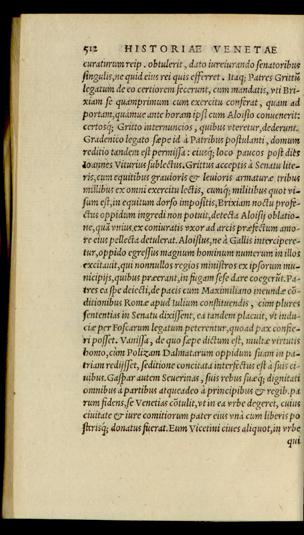 512 HISTORIAE VENETAE
curaturum reip. obtulerit, dato iureiurando senatoribus
singulis, ne quid eius rei quis efferret. Itaq; Patres Grittũ
legatum de eo certiorem fecerunt, cum mandatis, vti Bri-
xiam se quamprimum cum exercitu conferat, quam ad
portam, quamue ante horam ipsi cum Aloisio conuenerit:
certosq; Gritto internuncios, quibus vteretur, dederunt.
Gradenico legato sæpe id à Patribus postulanti, domum
reditio tandem est permissa: eiusq; loco paucos pòst dies
Ioannes Viturius sublectus. Grittus acceptis à Senatu lite-
ris, cum equitibus grauioris & leuioris armaturæ tribus
millibus ex omni exercitu lectis, cumq; militibus quot vi-
sum est, in equitum dorso impositis, Brixiam noctu profe-
ctus oppidum ingredi non potuit, detecta Aloisij oblatio-
ne, quã vnius, ex coniuratis vxor ad arcis præfectum amo-
re eius pellecta detulerat. Aloisius, ne à Gallis intercipere-
tur, oppido egressus magnum hominum numerum in illos
excitauit, qui nonnullos regios ministros ex ipsorum mu-
nicipijs, quibus præerant, in fugam sese dare coegerũt. Pa-
tres ea spe deiecti, de pacis cum Maximiliano ineundæ cõ-
ditionibus Romæ apud Iulium constituendis, cùm plures
sententias in Senatu dixissent, ea tandem placuit, vt indu-
ciæ per Foscarum legatum peterentur, quoad pax confie-
ri posset. Vanissa, de quo sæpe dictum est, multæ virtutis
homo, cùm Polizam Dalmatarum oppidum suam in pa-
triam redijsset, seditione concitata interfectus est à suis ci-
uibus. Gaspar autem Seuerinas, suis rebus suæq; dignitati
omnibus à partibus atque adeò à principibus & regib. pa
rum fidens, se Venetias cõtulit, vt in ea vrbe degeret, cuius
ciuitate & iure comitiorum pater eius vnà cum liberis po
steris; donatus fuerat. Eum Vicetini ciues aliquot, in vrbe
qui